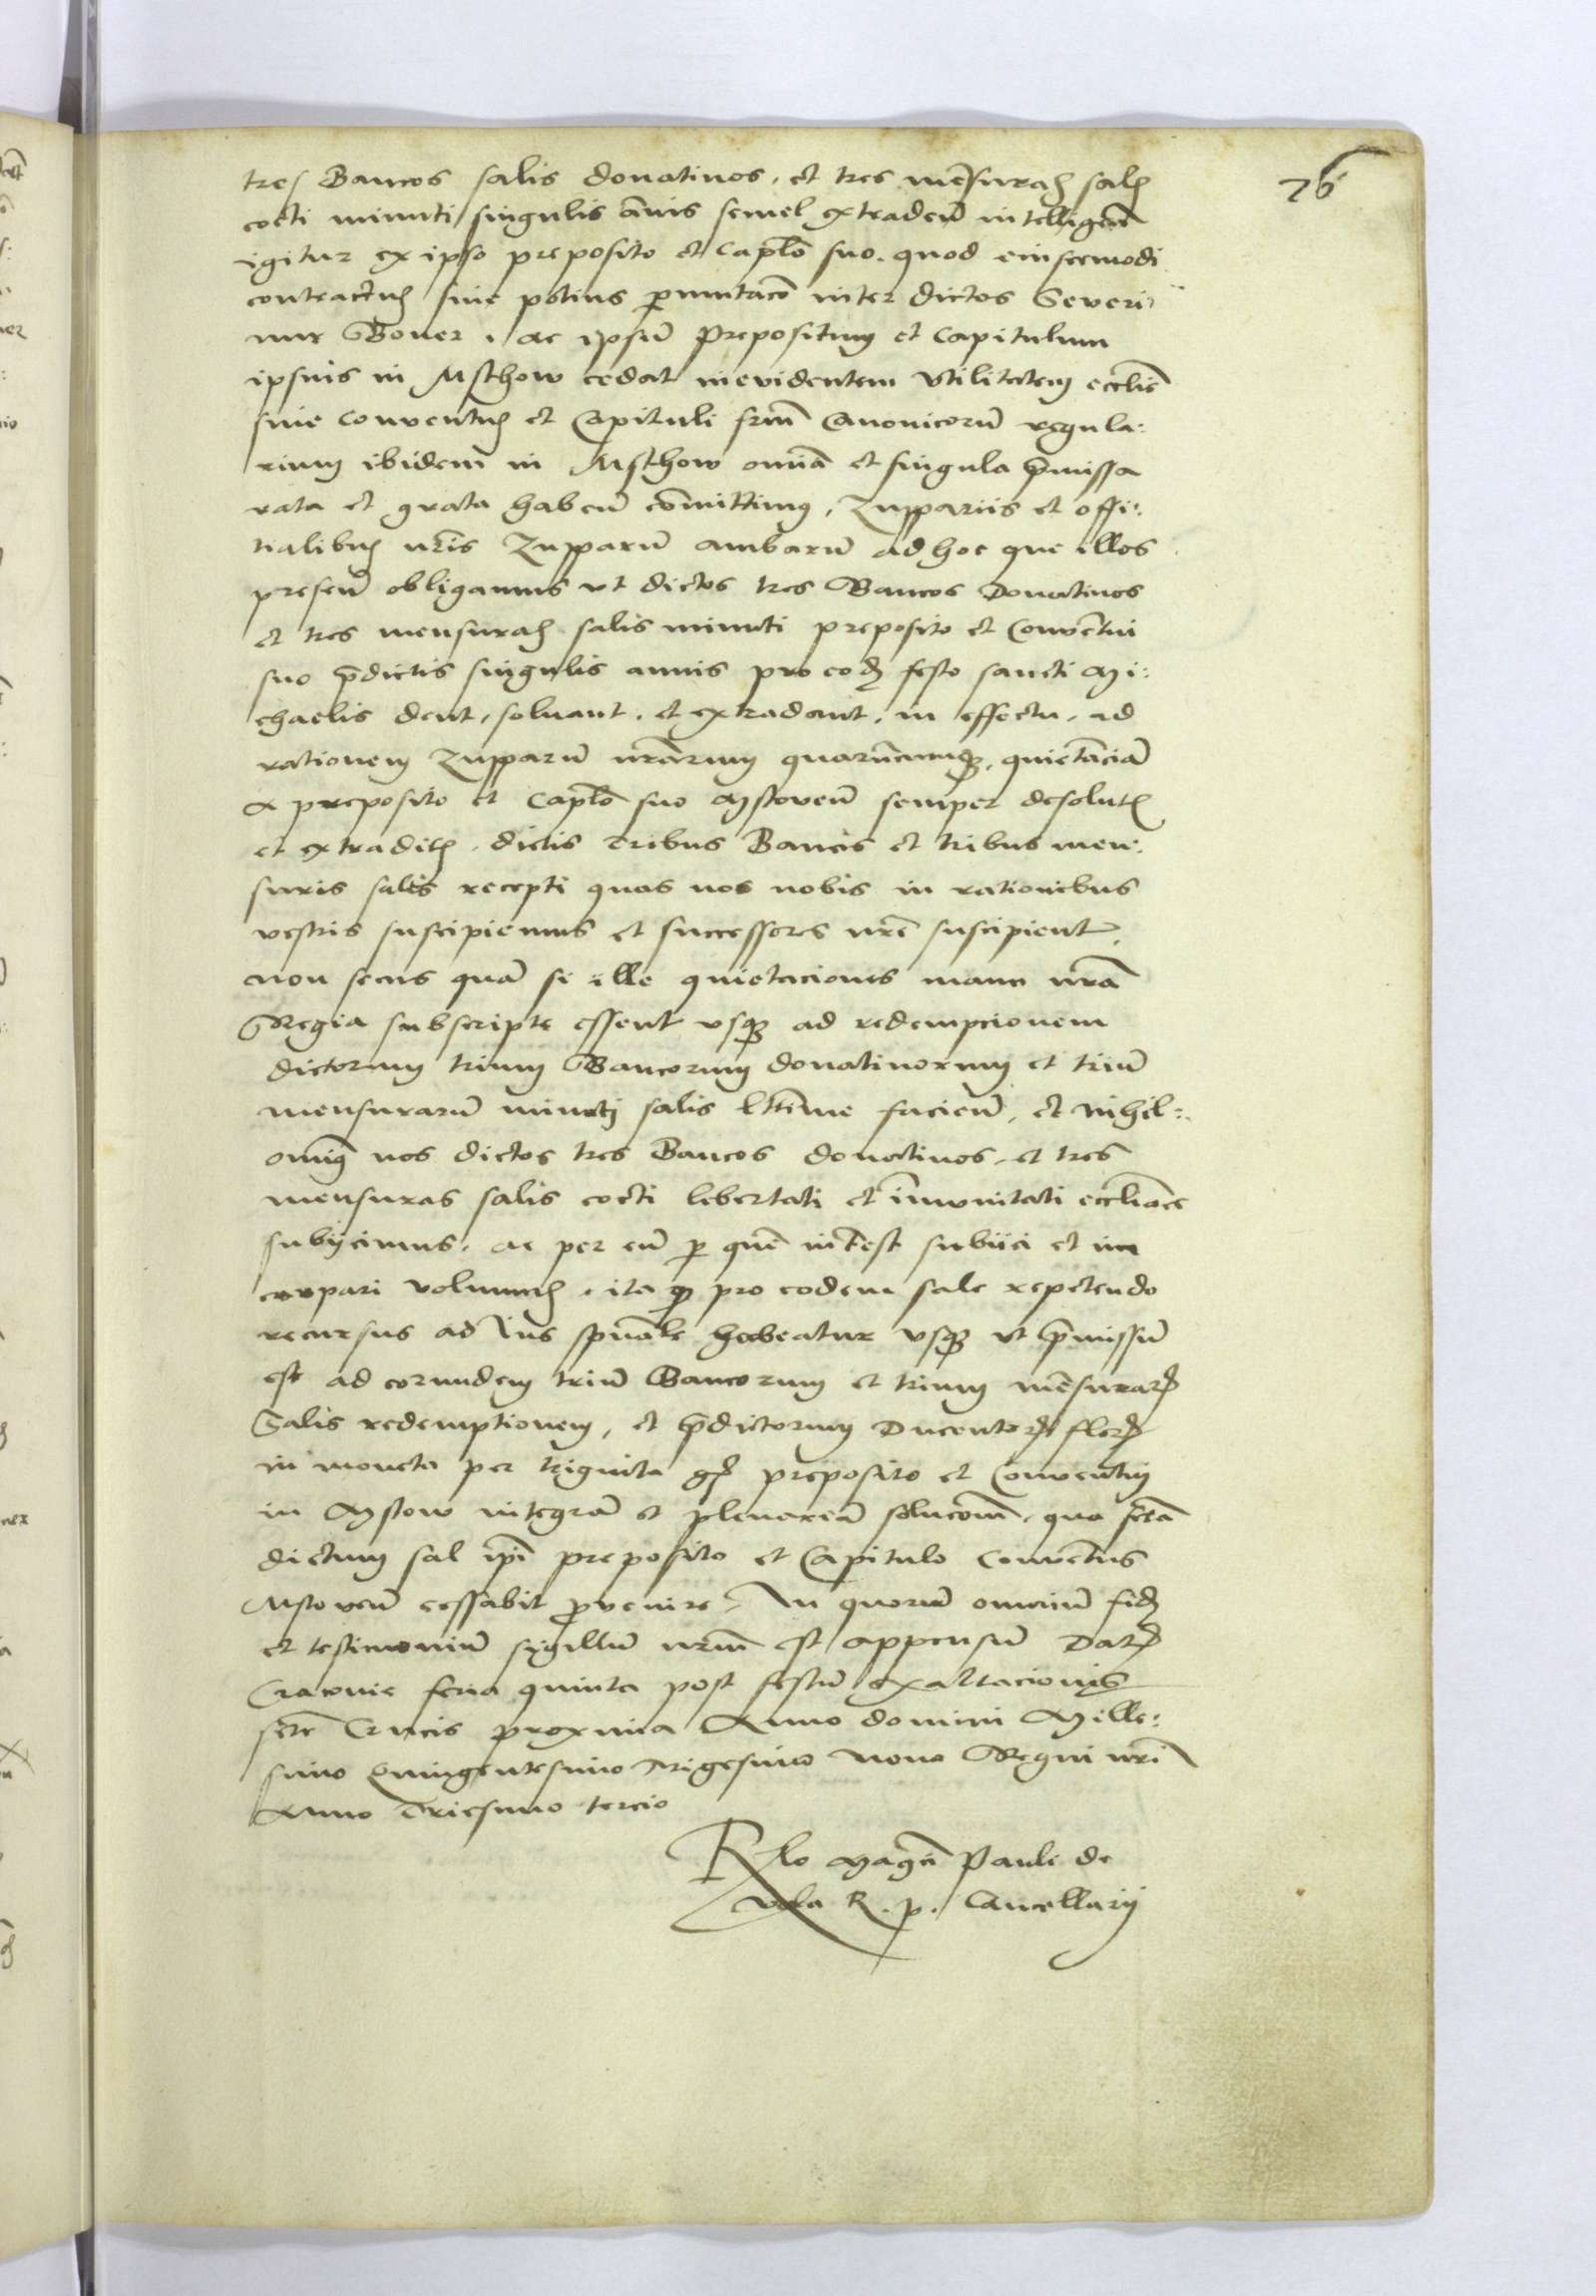 76
tres Bancos salis donativos, et tres mēsuras salis
cocti minuti singulis ānis semel extradeñ intelligeñ
igitur ex ipso preposito et Caplō suo. quod eiuscemodi
contractus siue potius pmutacō inter dictos Severi¬
num Boner, ac ipsū Prepositum et Capitulum
ipsius in Msthow cedat in evidentem vtilitatem ecclīe
siue conventus et Capituli frm̄ Canonicorū regula:
rium ibidem in Msthow omīa et singula p̄missa
rata et grata habeñ com̄ittimus, Zuppariis et offi:
tialibus nr̄is Zupparū ambarū ad hoc que illos
preseñ obligamus vt dictos tres Bancos Donativos
et tres mensuras salis minuti preposito et Conventui
suo p̄dictis singulis annis pro eodem festo sancti Mi:
chaelis dent, soluant, et extradant, in effectu, ad
rationem Zupparū nrārum quarūcumq, quietāciā
a preposito et Caplō suo Mstoveñ semper de solutis
et extraditis, dictis tribus Bancis et tribus men:
suris salis recepti quas nos nobis in rationibus
vestris suscipiemus et successores nrī suscipient,
non secus quā si ille quietaciones manu nrā
Regia subscripte essent vsq ad redempcionem
dictorum trium Bancorum donativorum et triū
mensurarū minuti salis lt̄ime facieñ, et nihil:
omin9 nos dictos tres Bancos donativos, et tres
mensuras salis cocti libertati et im̄unitati eccliācē
subijcimus, ac per eū p quē int̄est subiici et in
corpari volumus, ita q pro eodem sale repetendo
recursus ad Ius spuāle habeatur vsq vt p̄missū
est ad eorundem triū Bancorum et trium mēsurar
Salis redemptionem, et p̄dictorum Ducentor flor
in moneta per triginta gs preposito et Conventui
in Mstow integrā et plenariā solucom̄, qua fctā
dictum sal ipī preposito et Capitulo Conventus
Mstoveñ cessabit pvenire, In quorū omniū fidem
et testimoniū sygillū nrm̄ est appensū Dat
Cracovie feria quinta post festū exaltacionis
sctē Crucis proxima Anno domini Mille:
simo Quingentesimo Trigesimo nono Regni nrī
Anno Tricesimo tercio
Rlo Magci Pauli de
vola R. p. Cancellarij